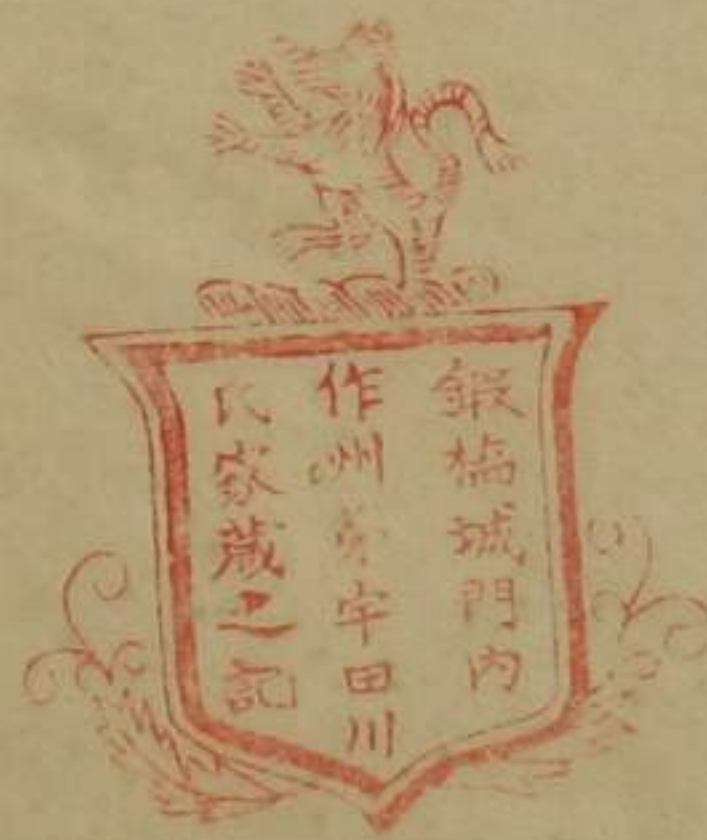 鍜橋城門内
作州宇田川
氏家蔵之記